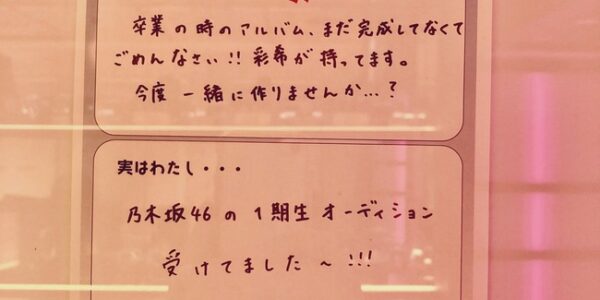 卒業の時のアルバム、まだ完成してなくて
ごめんなさい!! 彩希が持ってます。
今度一緒に作りませんか…?
実はわたし・・・
乃木坂46の1期生オーディション
受けてました～!!!